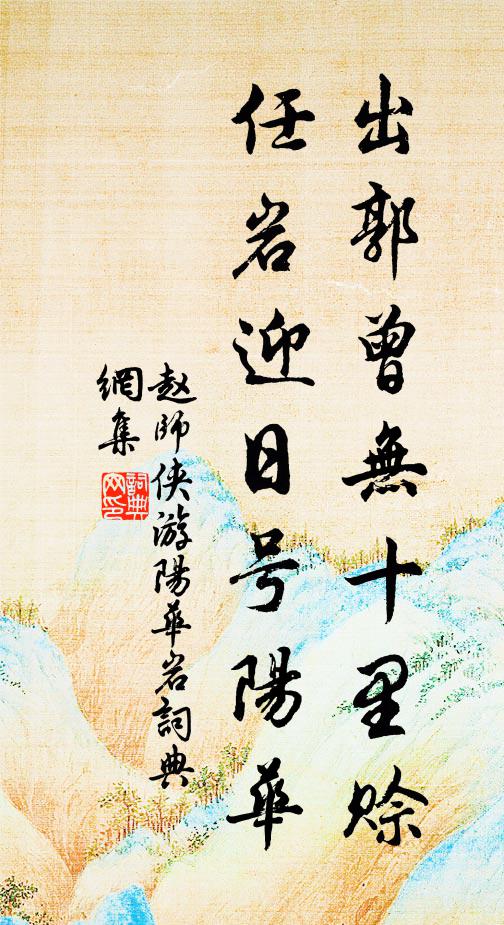 出郭曾無十里赊
任岩迎日号陽華
赵師侠游陽華岩詞典
網集
詞典
网印